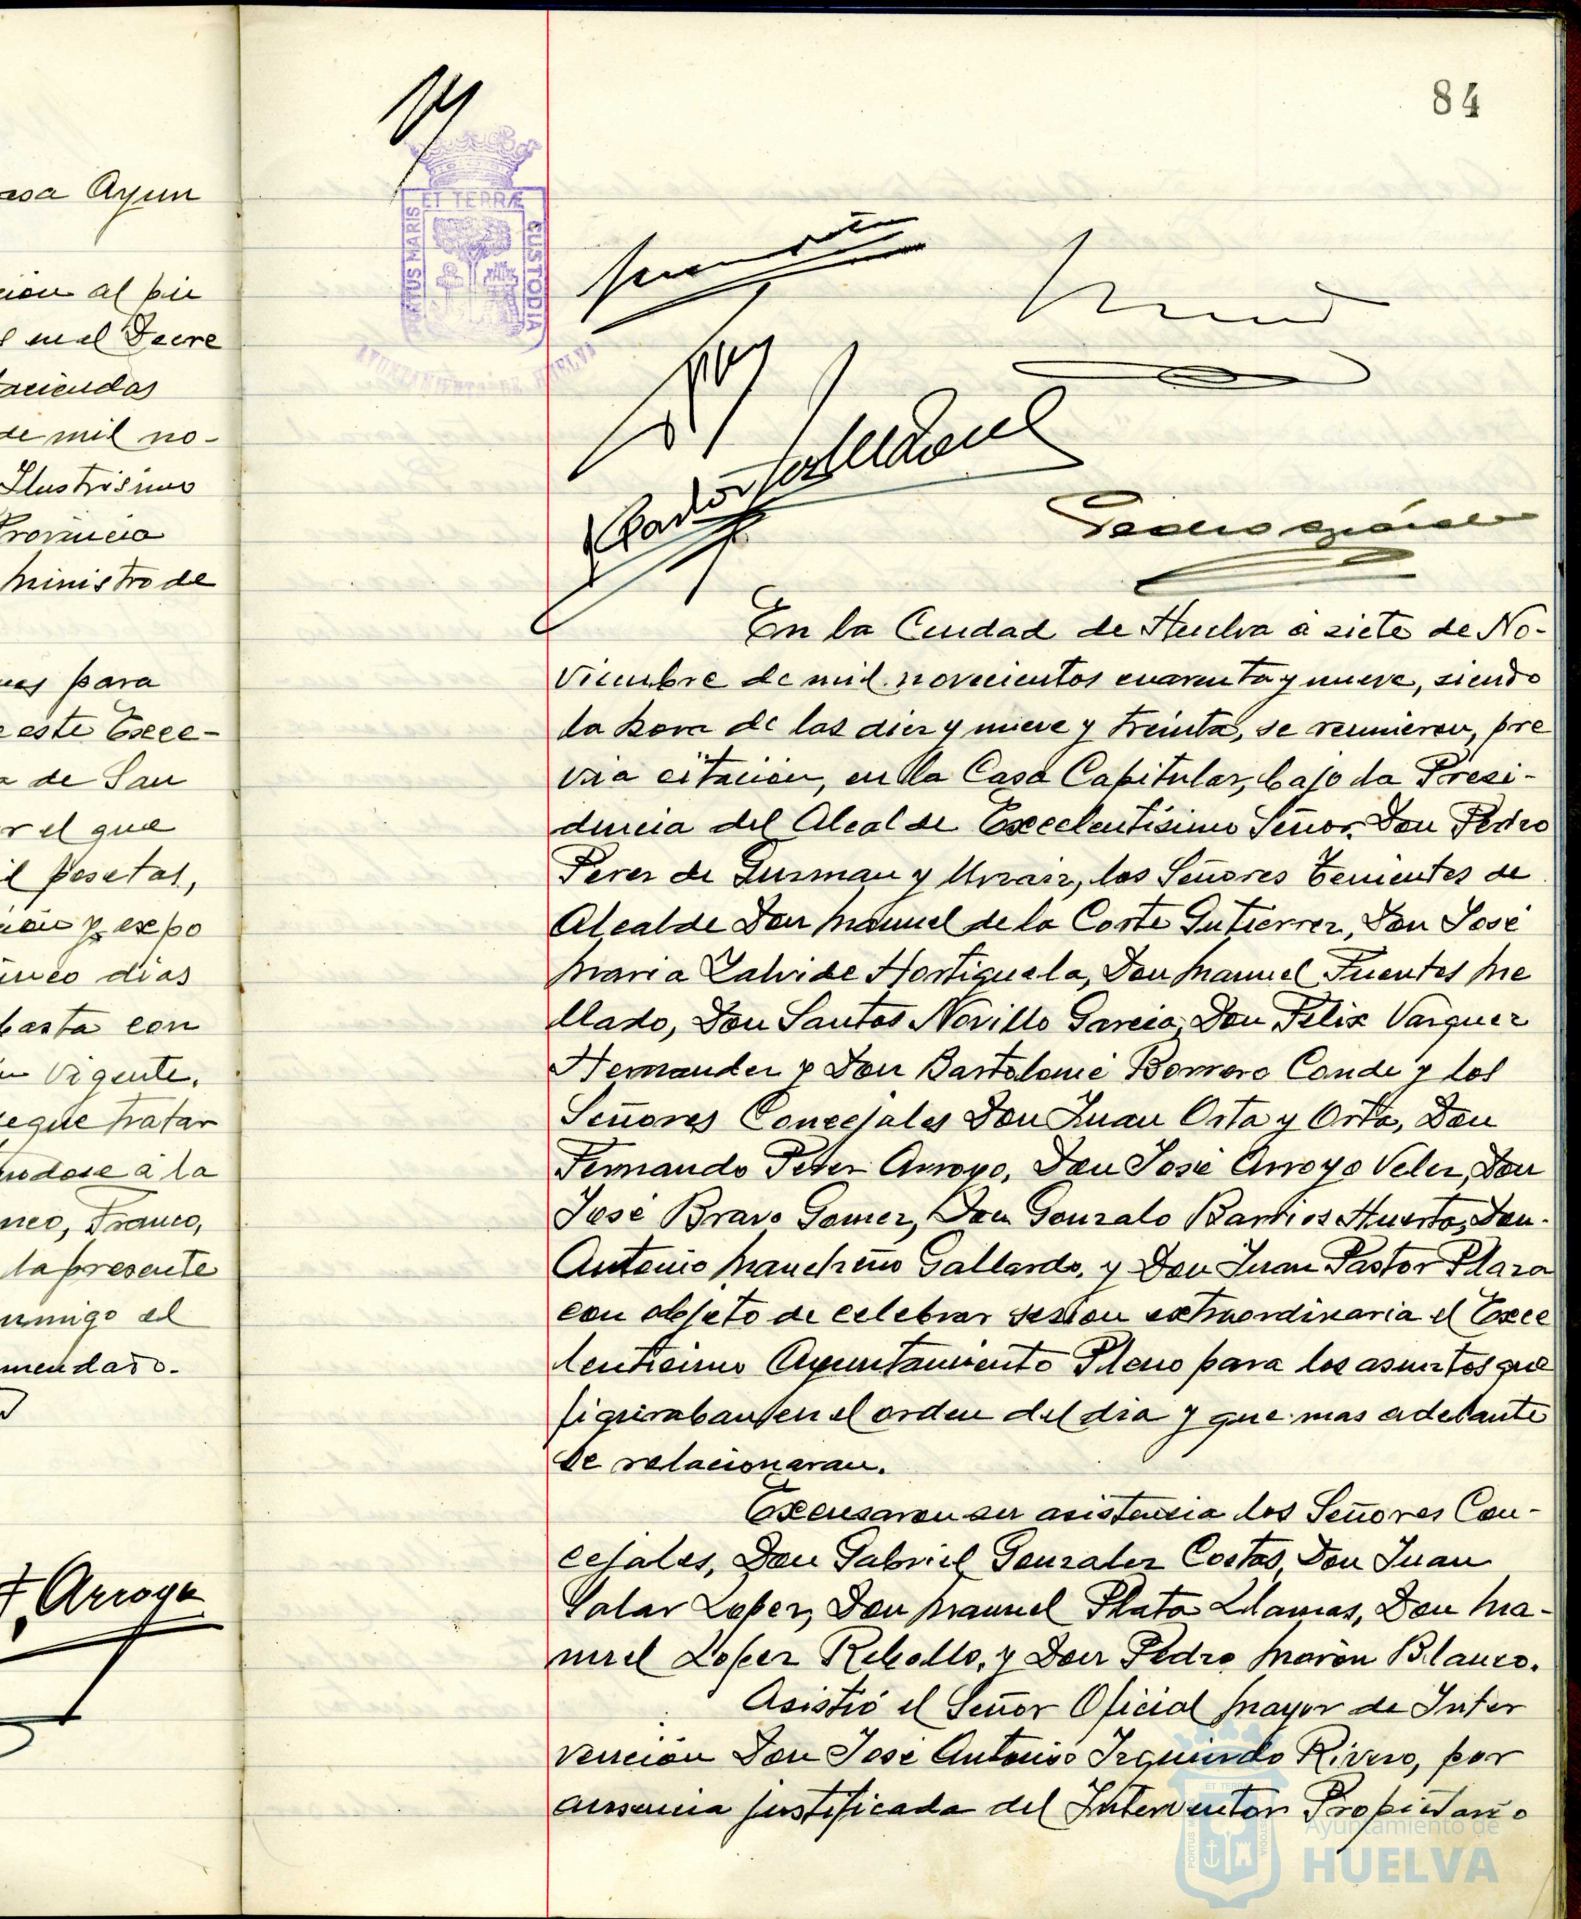 84
ET TERRÆ
PORTUS MARIS
CUSTODIA
AYUNTAMIENTO DE HUELVA
asa Ayun
cion al pie
en el Decre
Haciendas
de mil no-
Ilustrisimo
Provincia
Ministro de
para
este Exce-
a de San
r el que
il pesetas,
y expo
dias
basta con
Vigente.
que tratar
ndose á la
Franco,
la presente
nmigo el
mendado.
F. Arroyo
En la Ciudad de Huelva á siete de No-
viembre de mil novecientos cuarenta y nueve, siendo
la hora de las diez y nueve y treinta, se reunieron, pre
via citación, en la Casa Capitular, bajo la Presi-
dencia del Alcalde Excelentisimo Señor Don Pedro
Perez de Guzman y Urzaiz, los Señores Tenientes de
Alcalde Don Manuel de la Corte Gutierrez, Don José
Maria Zalvide Hortiguela, Don Manuel Fuentes Me
llado, Don Santos Novillo Garcia, Don Felix Vazquez
Hernandez y Don Bartolomé Borrero Conde y los
Señores Concejales Don Juan Orta y Orta, Don
Fernando Perez Arroyo, Don José Arroyo Velez, Don
José Bravo Gomez, Don Gonzalo Barrios Huerta, Don
Antonio Mancheño Gallardo, y Don Juan Pastor Plaza
con objeto de celebrar sesion extraordinaria el Exce
lentisimo Ayuntamiento Pleno para los asuntos que
figuraban en el orden del dia y que mas adelante
se relacionaran.
Excusaron su asistencia los Señores Con-
cejales, Don Gabriel Gonzalez Costas, Don Juan
Salas Lopez, Don Manuel Plata Llamas, Don Ma-
nuel Lopez Rebollo, y Don Pedro Morón Blanco.
Asistió el Señor Oficial Mayor de Inter
vención Don José Antonio Izquierdo Rivero, por
ausencia justificada del Interventor Propietario
Ayuntamiento de
HUELVA